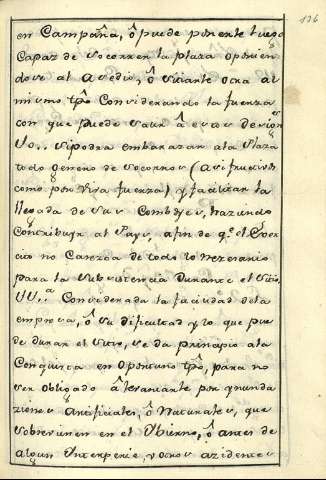 136
en Campaña, ô puede ponerse luego
Capaz de socorrer la plaza oponien
dose al Asedio, ô sitiante otra al
mismo tpô Considerando la fuerza
con que puede salir â estos desig.
si podra embarazar ala Plaza
todo genero de socorros (asi furtivos
como por viva fuerza) y facilitar la
llegada de sus Comboyes, haziendo
Contribuyr al Pays, afin de q.e el Exer
cito no Caresca de todo lo nezesario
para la subsistencia durante el sitio,
Considerada la facilidad dela
empresa, ô su dificultad y lo que pue
de durar el sitio, se da principio ala
Conquista en oportuno tpô, para no
ser obligado â levantarle por ynunda
ziones Artificiales, ô Naturales, que
sobrevienen en el Ybierno, ô antes de
algun Intemperie, y otros azidentes